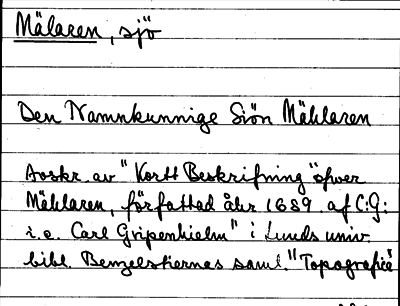 Mälaren, sjö
Den Namnkunnige Siön Mählaren
Avskr. av "Kortt Beskrifning öfwer
Mählaren, författad åhr 1689 af C:G:
i.e. Carl Gripenhielm" i Lunds univ.
bibl. Benzelstiernas saml. "Topografica"